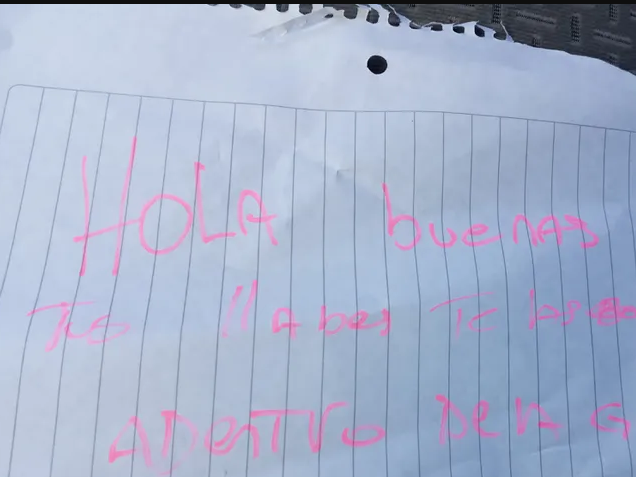 HOLA buenAs
Tus llAbes Te las
ADenTro De lA G